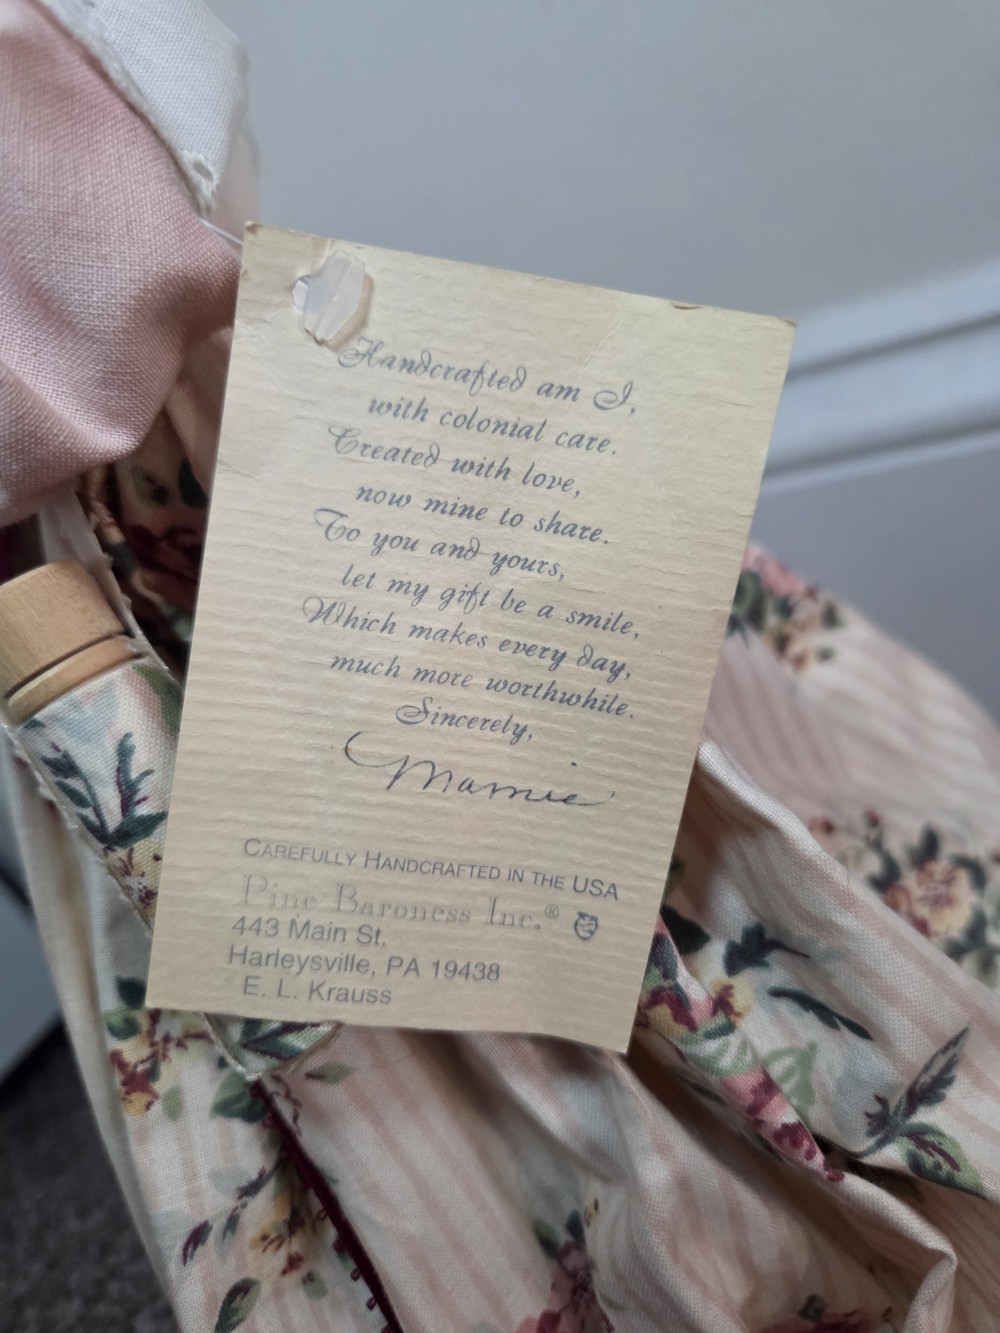 Handcrafted am I,
with colonial care.
Created with love,
now mine to share.
To you and yours,
let my gift be a smile,
Which makes every day,
much more worthwhile.
Sincerely,
Mamie
CAREFULLY HANDCRAFTED IN THE USA
Pine Baroness Inc.®
443 Main St,
Harleysville, PA 19438
E. L. Krauss